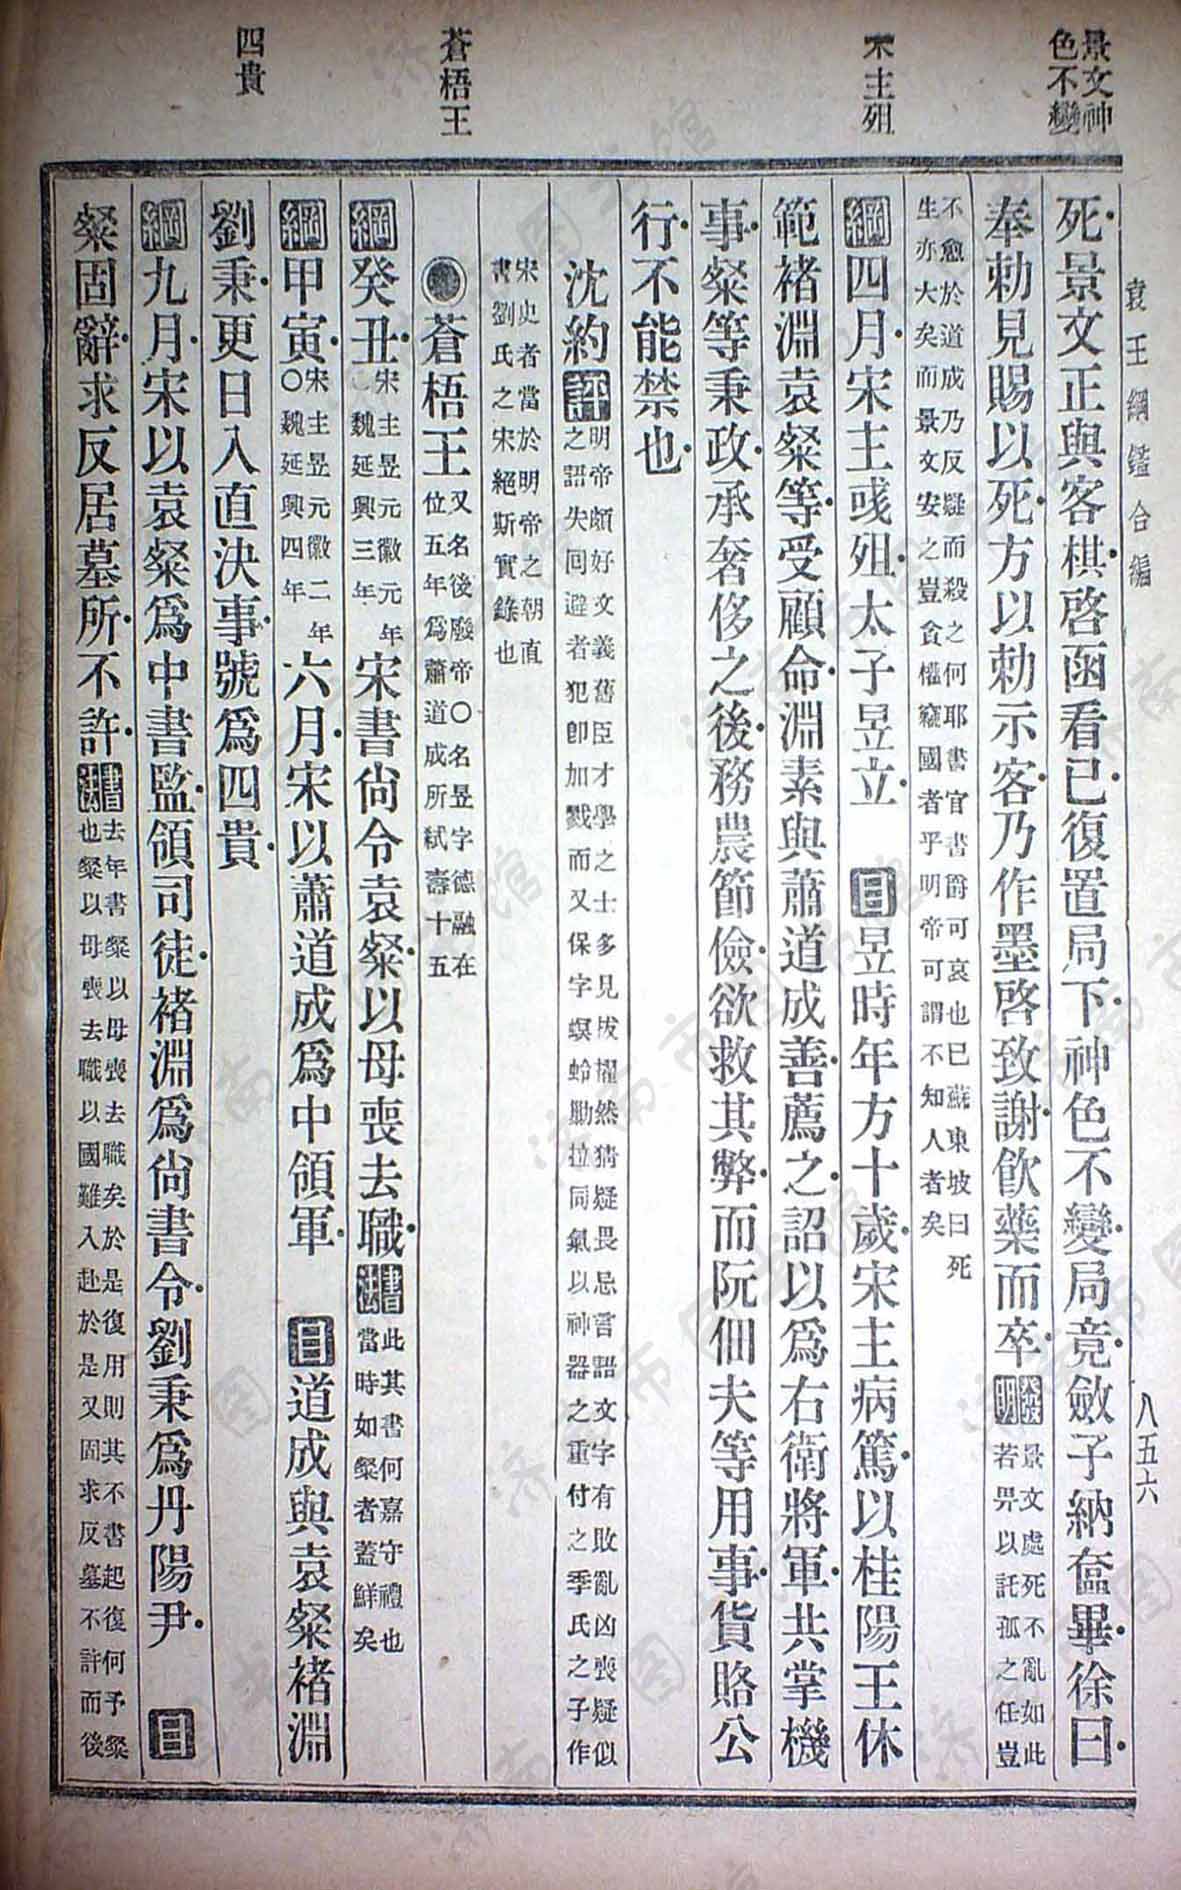 景文神
色不變
宋主殂
蒼梧王
四貴
袁王綱鑑合編
八五六
死景文正與客棋啓函看已復置局下神色不變局竟斂子納奩畢徐曰
奉勅見賜以死方以勅示客乃作墨啓致謝飲藥而卒發明景文處死不亂如此
若畀以託孤之任豈
不愈於道成乃反疑而殺之何耶書官書爵可哀也已蘇東坡曰死
生亦大矣而景文安之豈貪權竊國者乎明帝可謂不知人者矣
綱四月宋主彧殂太子昱立 目昱時年方十歲宋主病篤以桂陽王休
範褚淵袁粲等受顧命淵素與蕭道成善薦之詔以爲右衛將軍共掌機
事粲等秉政承奢侈之後務農節儉欲救其弊而阮佃夫等用事貨賂公
行不能禁也
沈約評明帝頗好文義舊臣才學之士多見拔擢然猜疑畏忌言語文字有敗亂凶喪疑似
之語失回避者犯卽加戮而又保字螟蛉勦拉同氣以神器之重付之季氏之子作
宋史者當於明帝之朝直
書劉氏之宋絕斯實錄也
蒼梧王又名後廢帝○名昱字德融在
位五年爲蕭道成所弑壽十五
綱癸丑宋主昱元徽元年
魏延興三年宋書尙令袁粲以母喪去職書法此其書何嘉守禮也
當時如粲者蓋鮮矣
綱甲寅宋主昱元徽二年
○魏延興四年六月宋以蕭道成爲中領軍 目道成與袁粲褚淵
劉秉更日入直決事號爲四貴
綱九月宋以袁粲爲中書監領司徒褚淵爲尙書令劉秉爲丹陽尹 目
粲固辭求反居墓所不許書法去年書粲以母喪去職矣於是復用則其不書起復何予粲
也粲以母喪去職以國難入赴於是又固求反墓不許而後